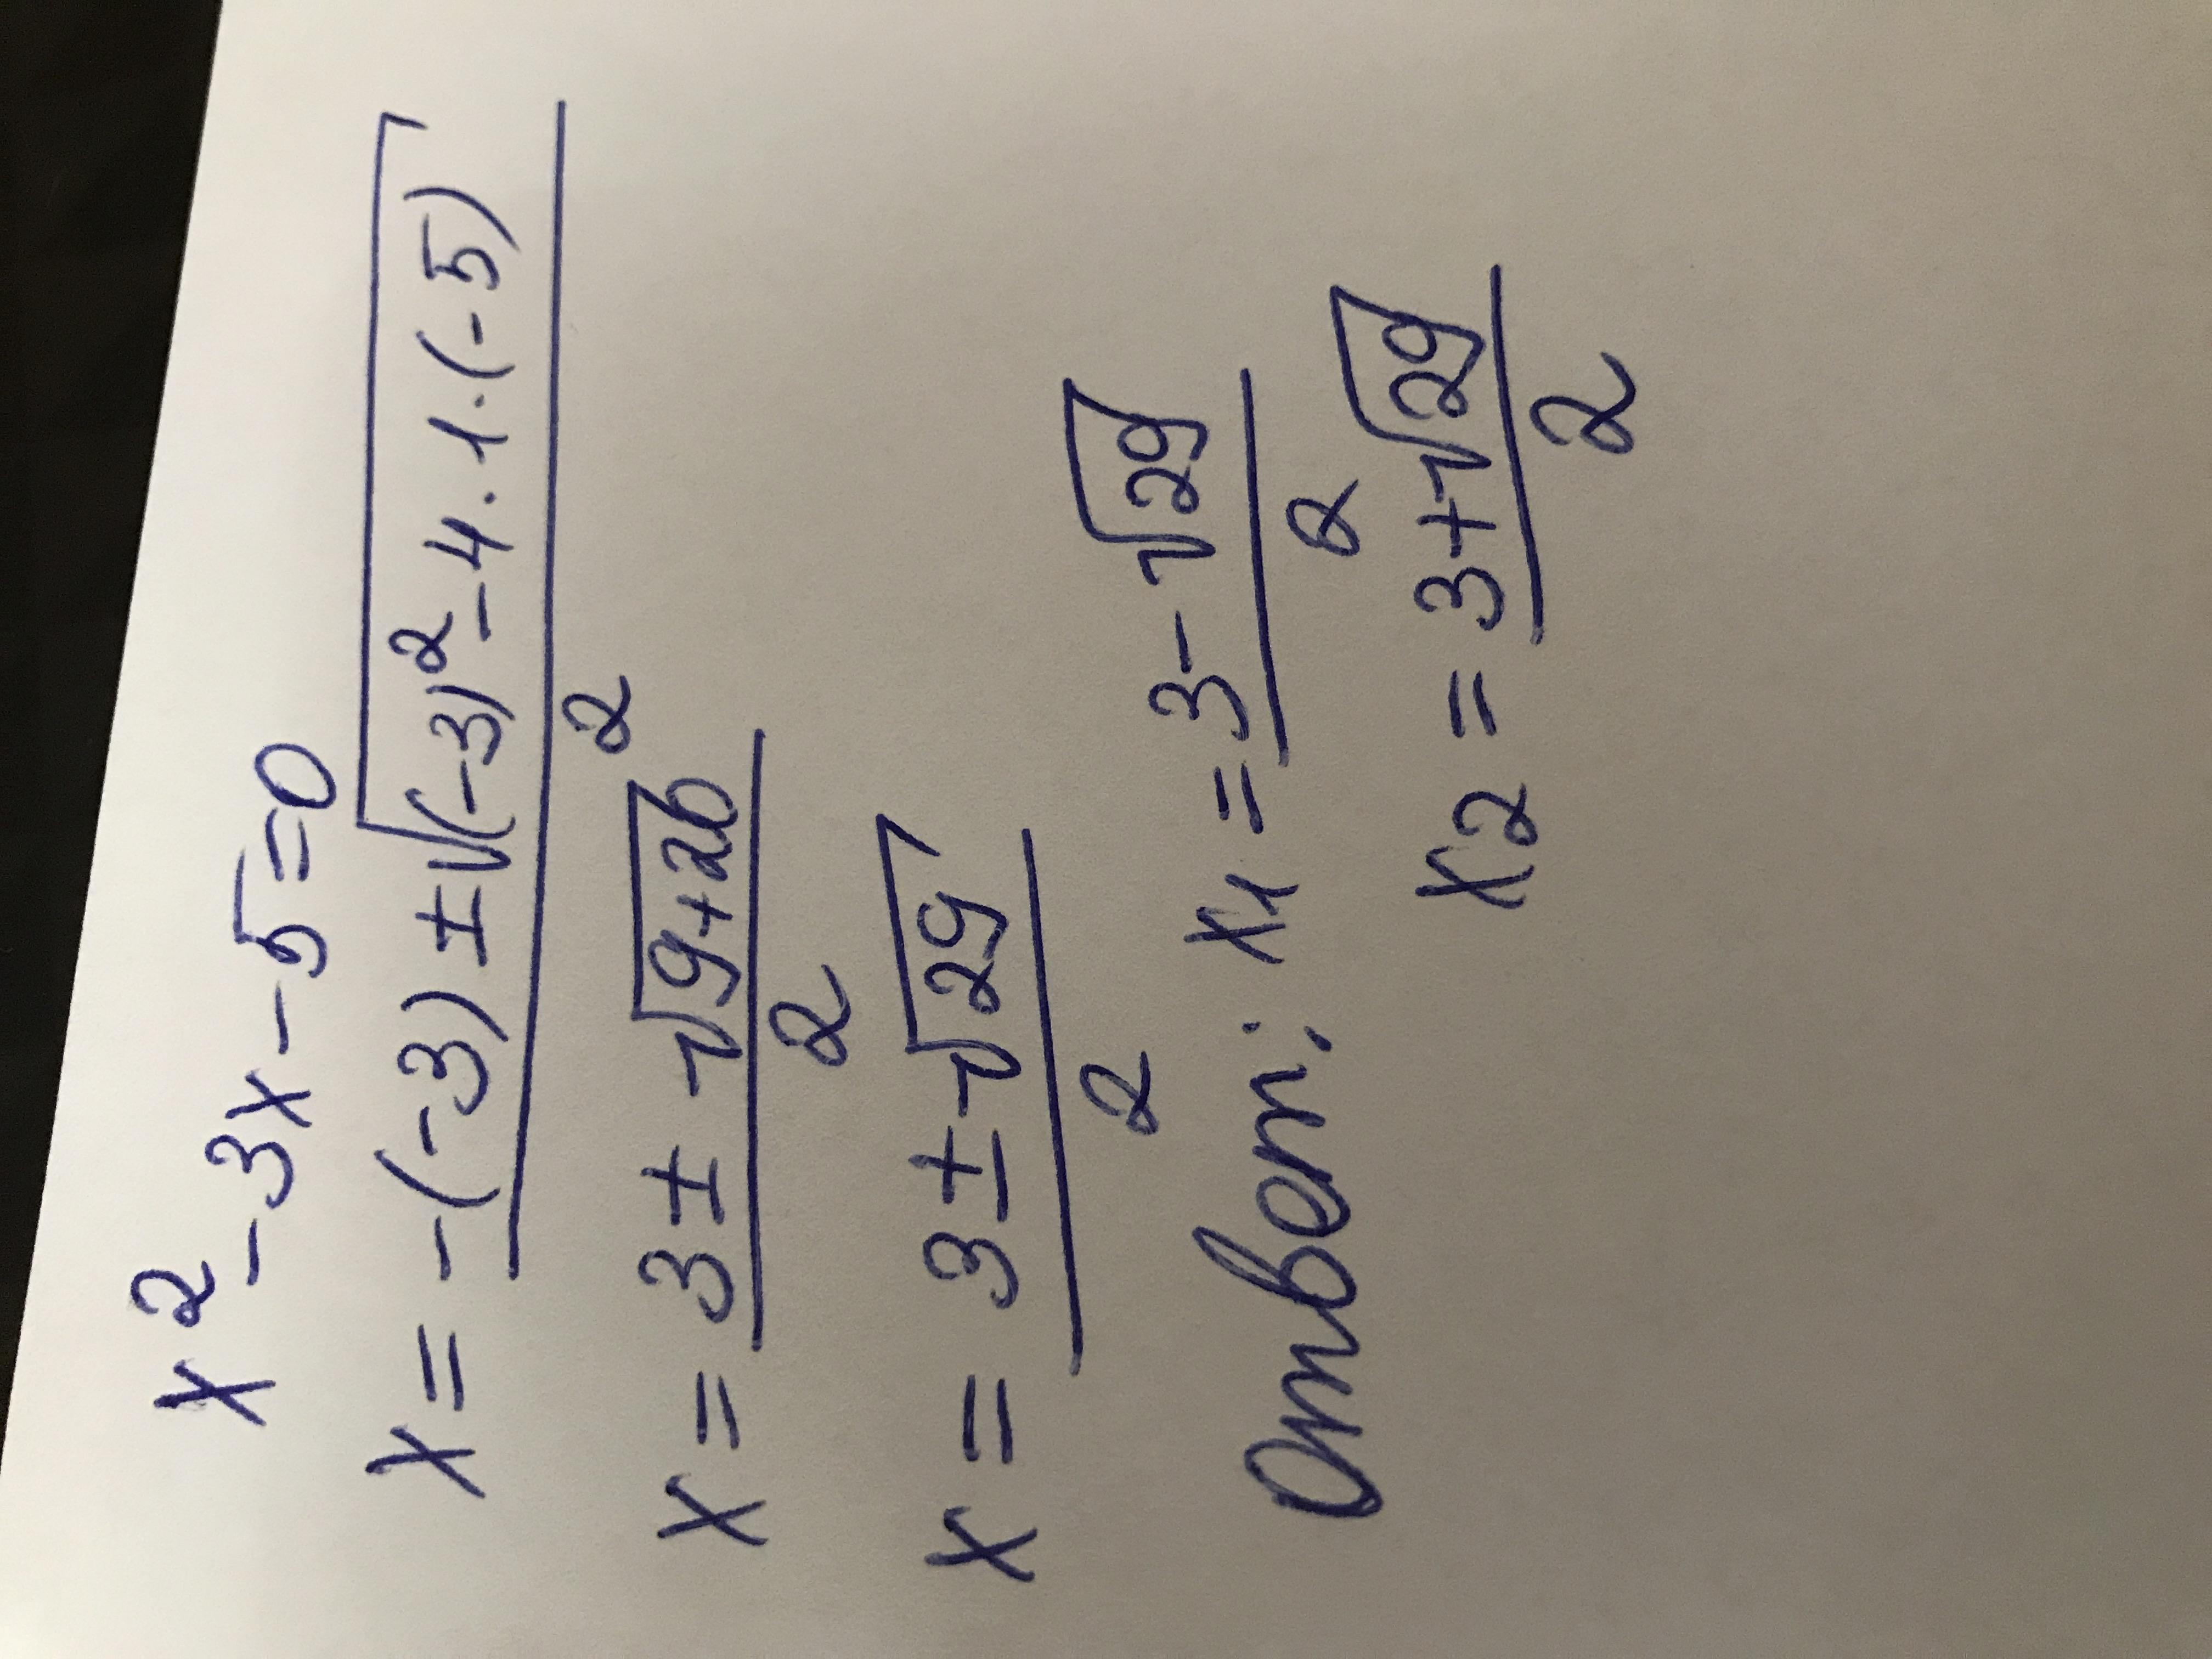 x² - 3x - 5 = 0
x = (-(-3) ± √((-3)² - 4 · 1 · (-5))) / 2
x = (3 ± √(9 + 20)) / 2
x = (3 ± √29) / 2
Ответ: x₁ = (3 - √29) / 2
x₂ = (3 + √29) / 2